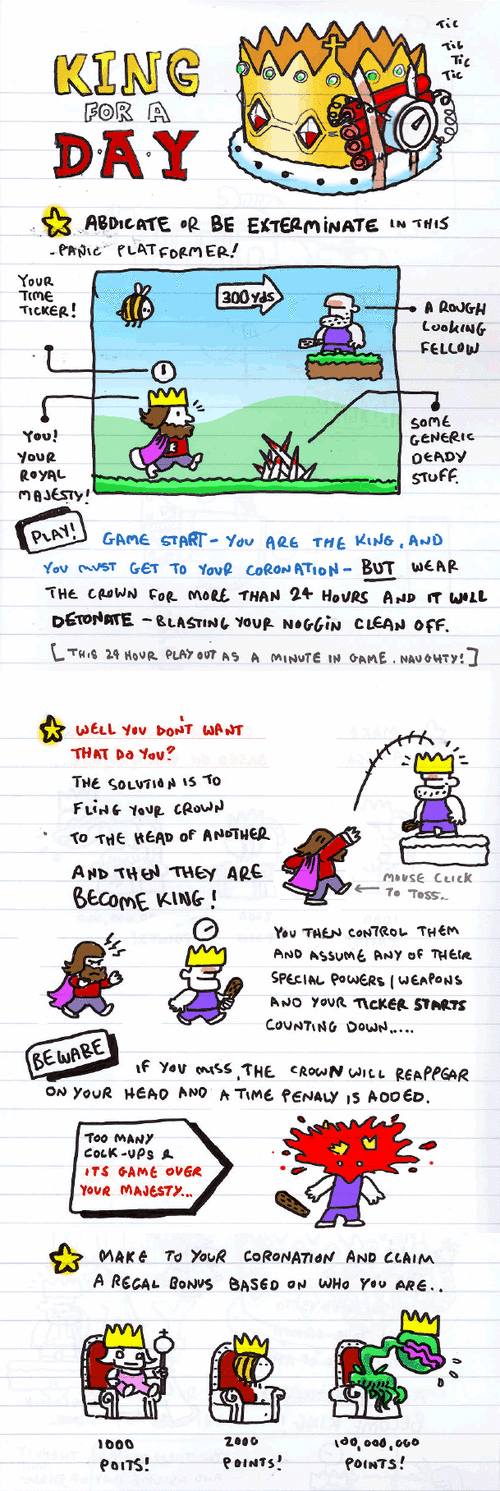 KING
FOR A
DAY
TIC
TIC
TIC
TIC
ABDICATE OR BE EXTERMINATE IN THIS
-PANIC PLATFORMER!
YOUR
TIME
TICKER!
300 yds
A ROUGH
LOOKING
FELLOW
YOU!
YOUR
ROYAL
MAJESTY!
SOME
GENERIC
DEADY
STUFF.
PLAY!
GAME START - YOU ARE THE KING, AND
YOU MUST GET TO YOUR CORONATION - BUT WEAR
THE CROWN FOR MORE THAN 24 HOURS AND IT WILL
DETONATE - BLASTING YOUR NOGGIN CLEAN OFF.
[THIS 24 HOUR PLAY OUT AS A MINUTE IN GAME. NAUGHTY!]
WELL YOU DON'T WANT
THAT DO YOU?
THE SOLUTION IS TO
FLING YOUR CROWN
TO THE HEAD OF ANOTHER
AND THEN THEY ARE
BECOME KING!
MOUSE CLICK
TO TOSS..
YOU THEN CONTROL THEM
AND ASSUME ANY OF THEIR
SPECIAL POWERS / WEAPONS
AND YOUR TICKER STARTS
COUNTING DOWN.....
BEWARE
IF YOU MISS, THE CROWN WILL REAPPEAR
ON YOUR HEAD AND A TIME PENALY IS ADDED.
TOO MANY
COCK-UPS &
ITS GAME OVER
YOUR MAJESTY...
MAKE TO YOUR CORONATION AND CLAIM
A REGAL BONUS BASED ON WHO YOU ARE..
1000
POITS!
2000
POINTS!
100,000,000
POINTS!